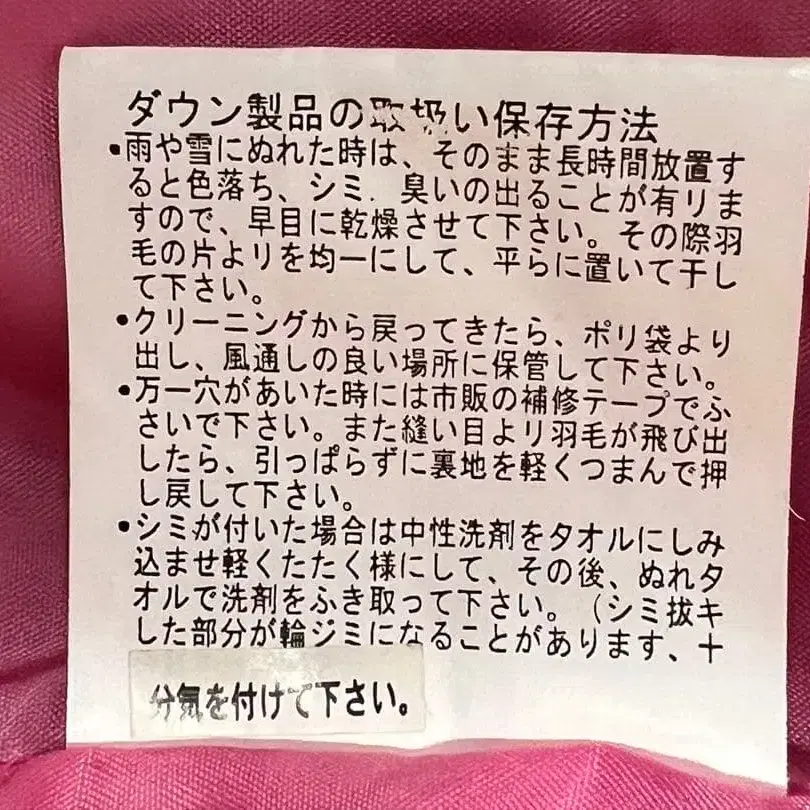 ダウン製品の取扱い保存方法
•雨や雪にぬれた時は、そのまま長時間放置す
ると色落ち、シミ.臭いの出ることが有りま
すので、早目に乾燥させて下さい。その際羽
毛の片よりを均一にして、平らに置いて干し
て下さい。
•クリーニングから戻ってきたら、ポリ袋より
出し、風通しの良い場所に保管して下さい。
•万一穴があいた時には市販の補修テープでふ
さいで下さい。また縫い目より羽毛が飛び出
したら、引っぱらずに裏地を軽くつまんで押
し戻して下さい。
•シミが付いた場合は中性洗剤をタオルにしみ
込ませ軽くたたく様にして、その後、ぬれタ
オルで洗剤をふき取って下さい。(シミ抜キ
した部分が輪ジミになることがあります、十
分気を付けて下さい。